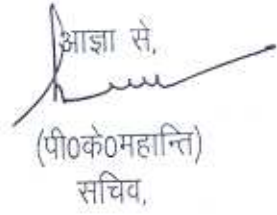 आज्ञा से,
(पी0के0महान्ति)
सचिव,